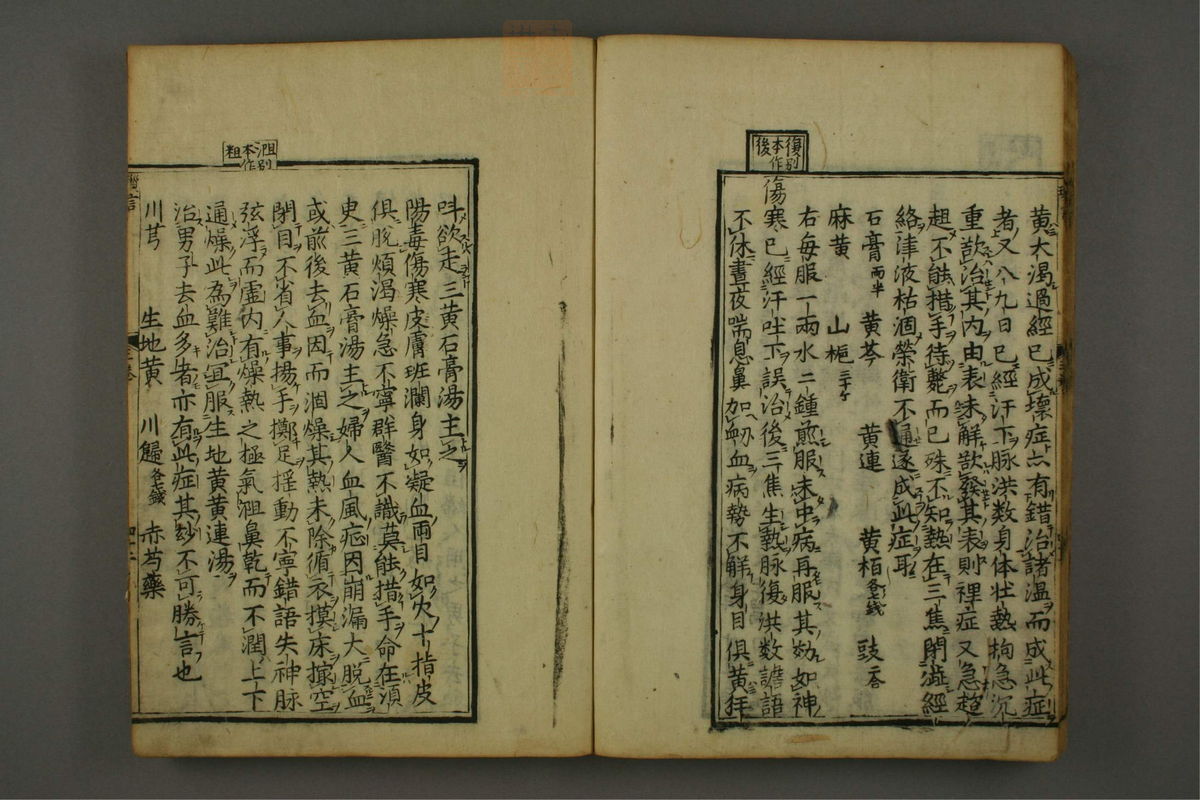 復別
本作
後
黄大渇過經已成壊症亦有錯治諸温而成此症
者又八九日已經汗下脉洪数身体壮熱拘急沉
重欲治其内由表未解欲發其表則裡症又急趦
趄不能措手待斃而已殊不知熱在三焦閉澁經
絡津液枯涸榮衛不通遂成此症耳
石膏 両半 黄芩 黄連 黄栢 各七銭 豉 二合
麻黄 山梔 三十ケ
右毎服一両水二鍾煎服未中病再服其効如神
傷寒已經汗吐下誤治後三焦生熱脉復洪数譫語
不休晝夜喘息鼻加衂血病勢不解身目俱黄狂
沮別
本作
粗
叫欲走三黄石膏湯主之
陽毒傷寒皮膚班瀾身如凝血兩目如火十指皮
俱脱煩渇燥急不寧群醫不識莫能措手命在湏
㪅三黄石膏湯主之婦人血風症因崩漏大脱血
或前後去血因而涸燥其熱未除循衣摸床撮空
閉目不省人事揚手擲足揺動不寧錯語失神脉
弦浮而虚内有燥熱之極氣沮鼻乾而不潤上下
通燥此為難治冝服生地黄黄連湯
治男子去血多者亦有此症其妙不可勝言也
川芎 生地黄 川歸 各七銭 赤芍藥